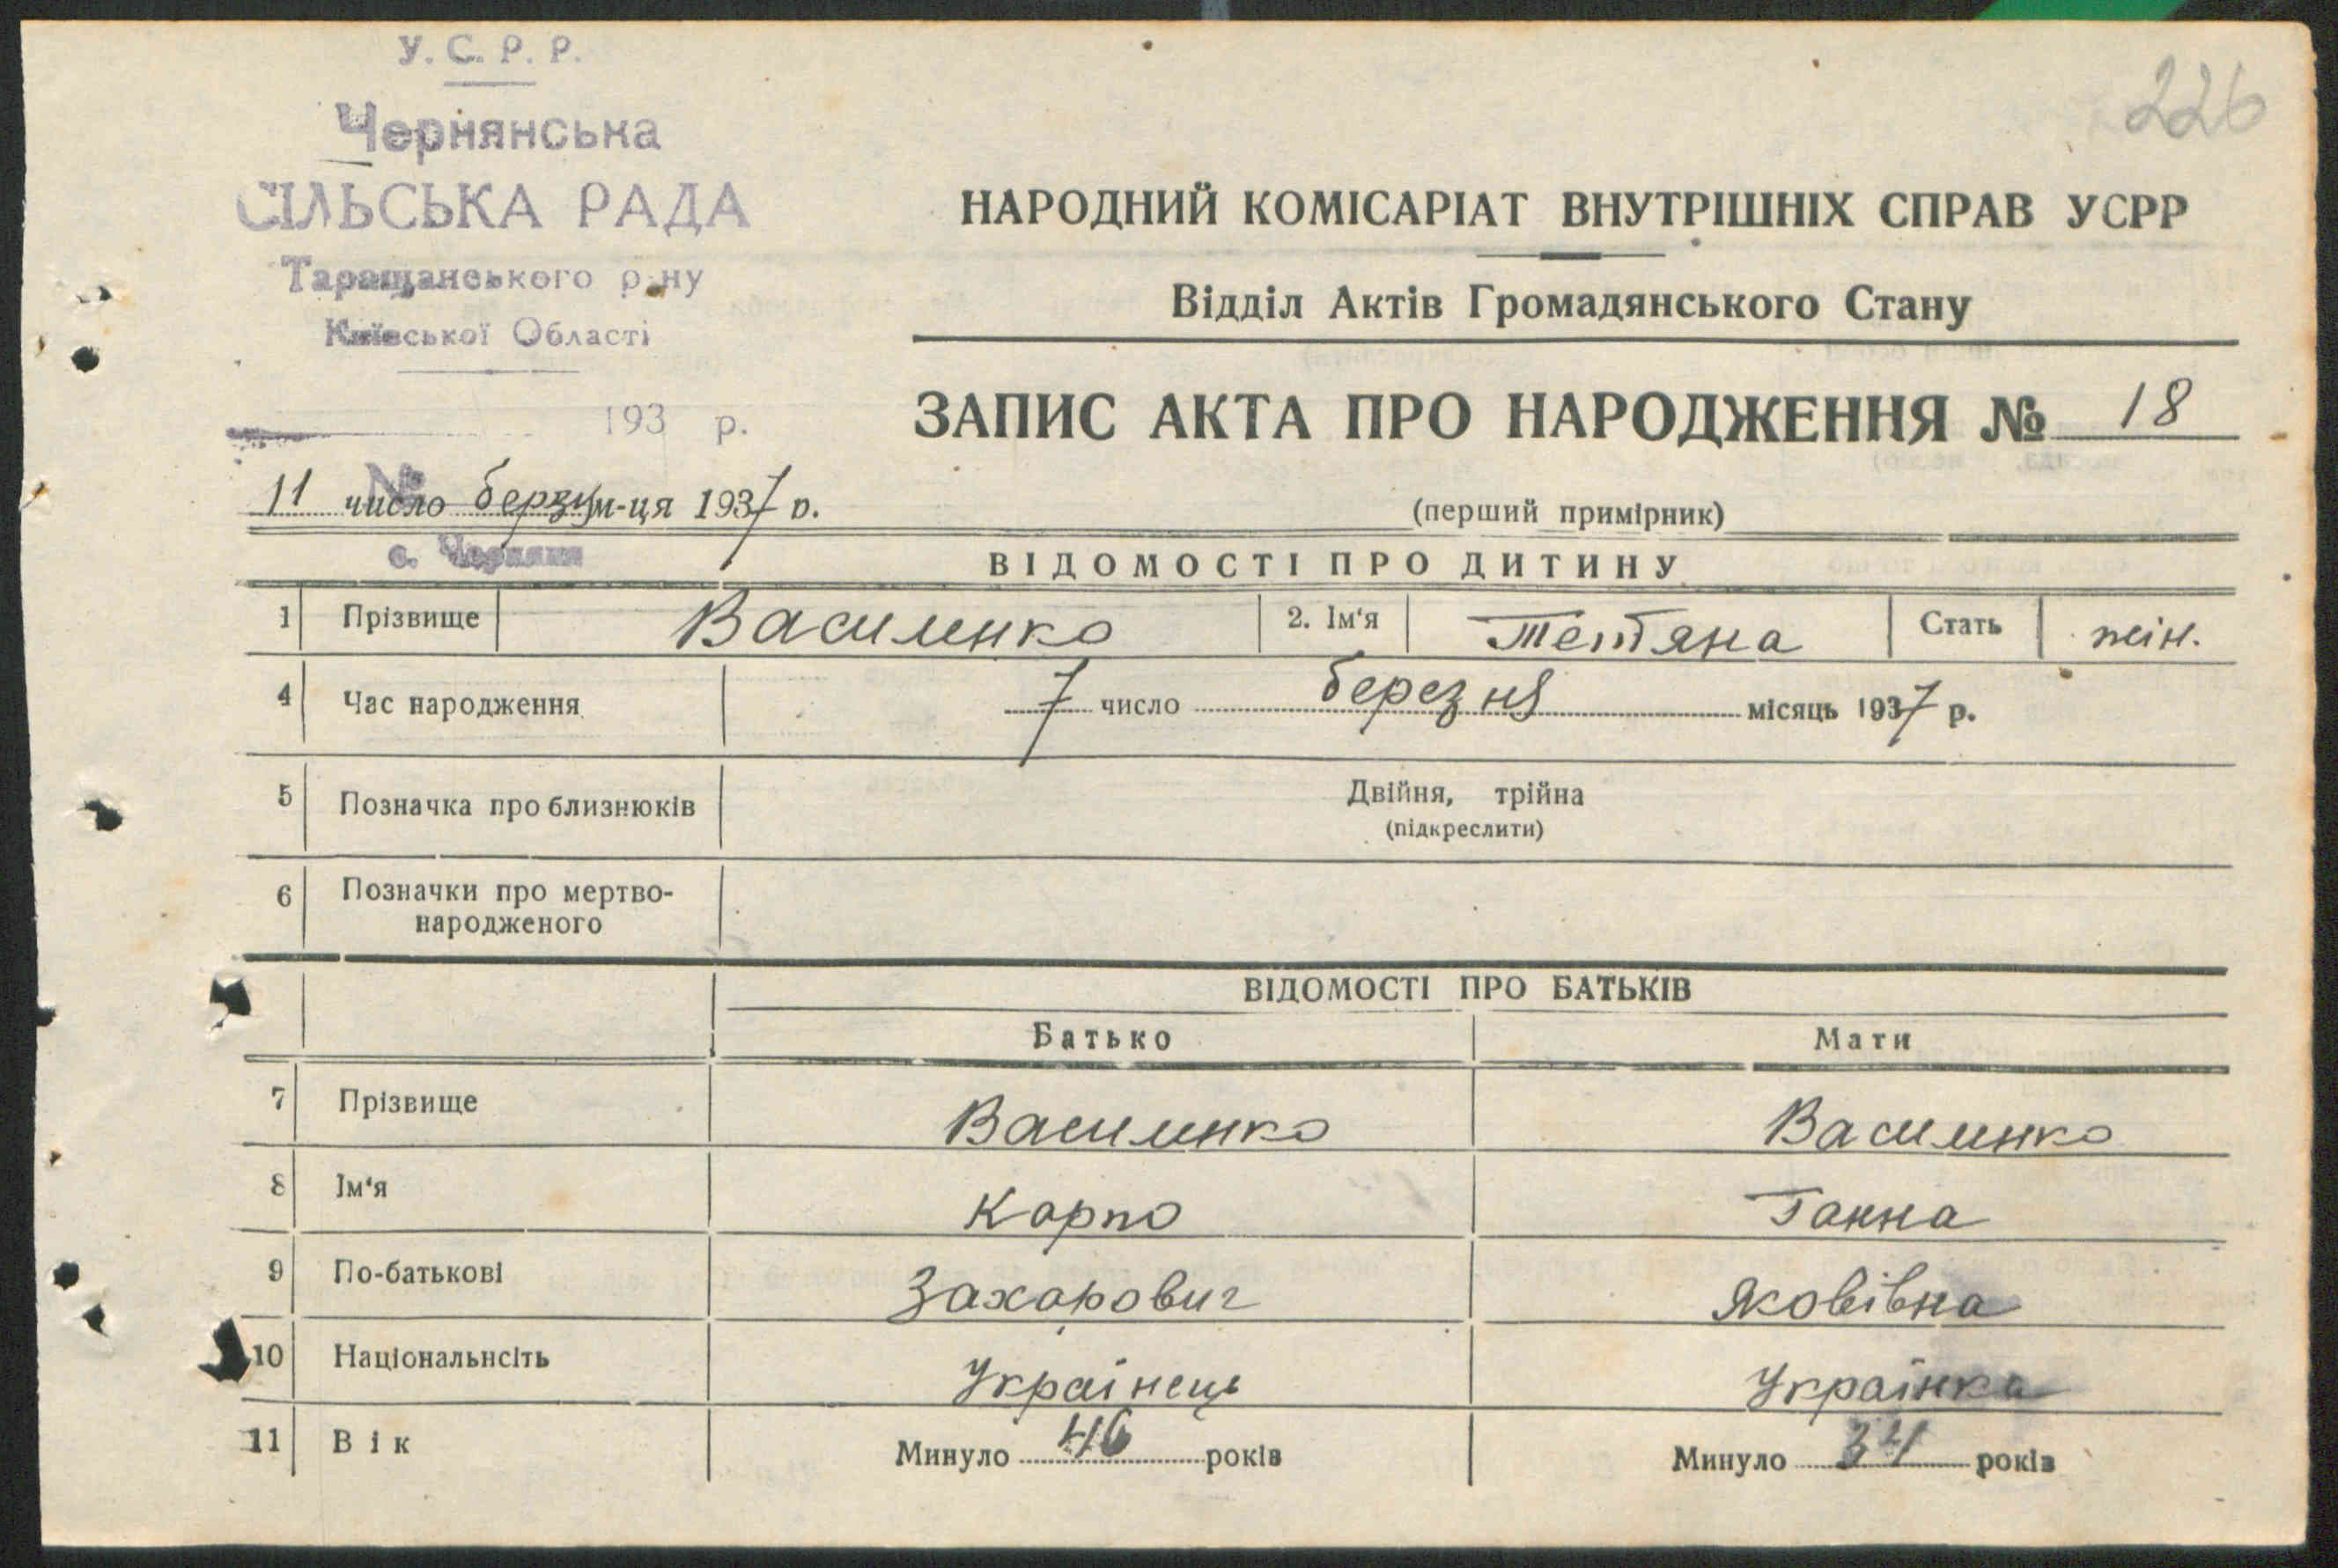 У. С. Р. Р.
Чернянська
СІЛЬСЬКА РАДА
Таращанського р-ну
Київської Області
193 р.
№
11 число березня м-ця 1937 р.
с. Черняки
226
НАРОДНИЙ КОМІСАРІАТ ВНУТРІШНІХ СПРАВ УСРР
Відділ Актів Громадянського Стану
ЗАПИС АКТА ПРО НАРОДЖЕННЯ № 18
(перший примірник)
ВІДОМОСТІ ПРО ДИТИНУ
1 Прізвище Василенко 2. Ім'я Тетяна Стать жін.
4 Час народження 7 число березня місяць 1937 р.
5 Позначка про близнюків Двійня, трійна
(підкреслити)
6 Позначки про мертво-
народженого
ВІДОМОСТІ ПРО БАТЬКІВ
Батько Мати
7 Прізвище Василенко Василенко
8 Ім'я Карпо Ганна
9 По-батькові Захарович Яковівна
10 Національнсіть Українець Українка
11 Вік Минуло 46 років Минуло 34 років